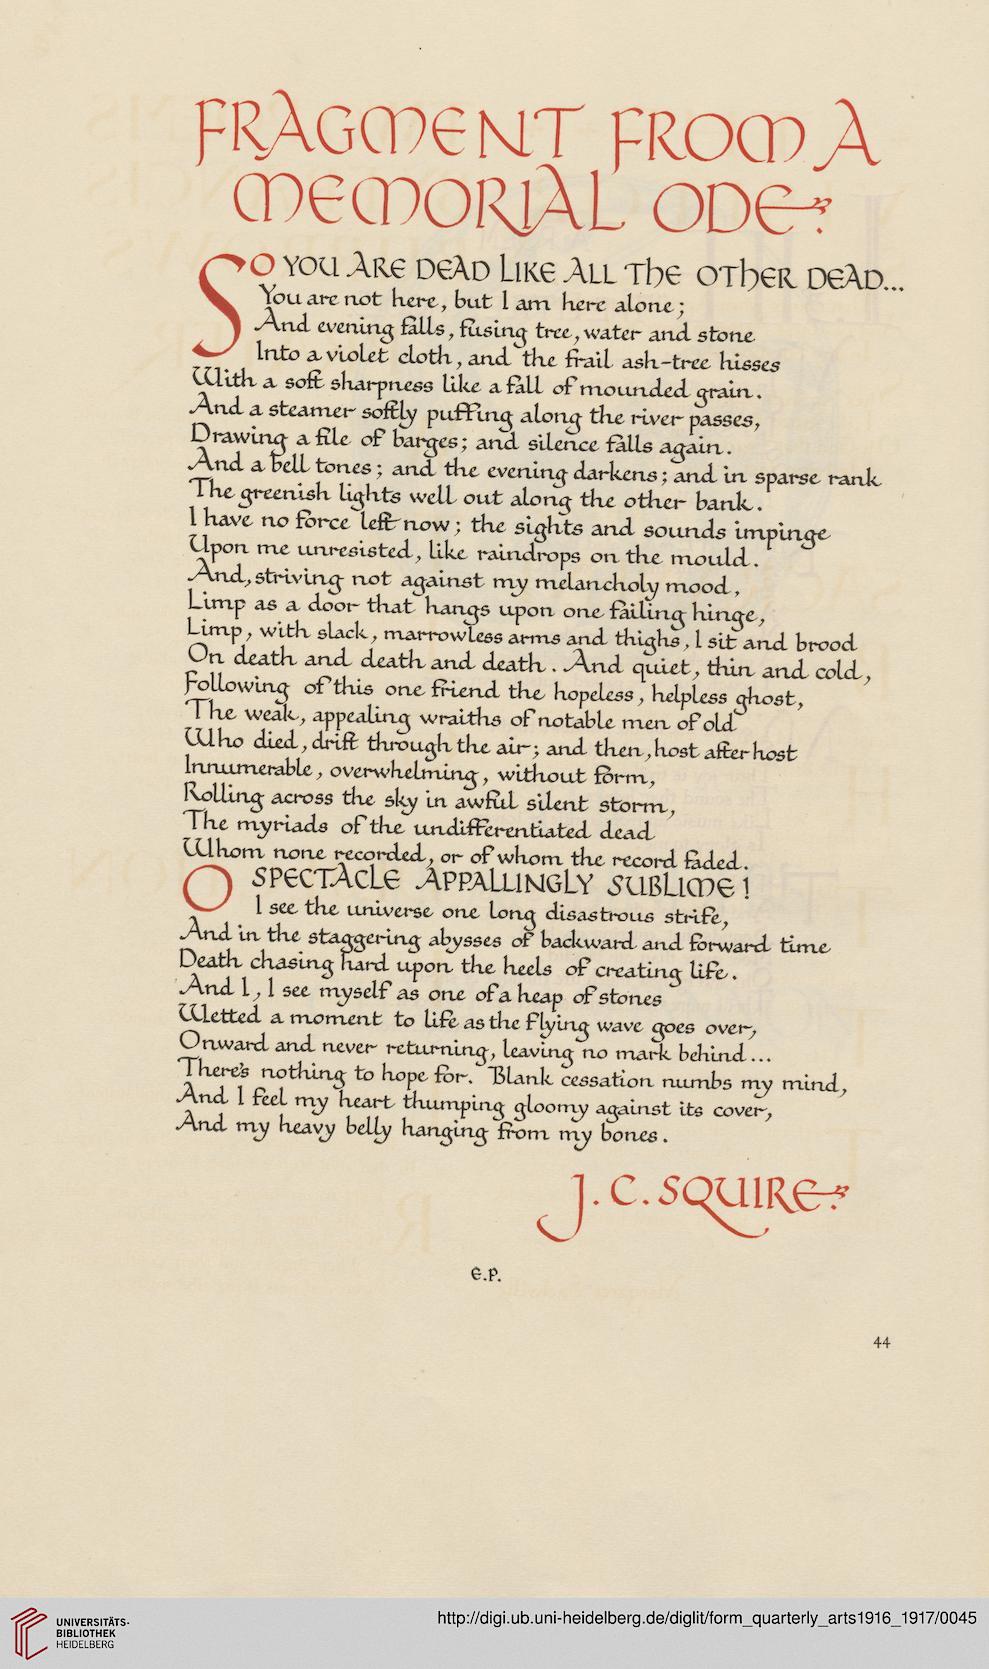 FRAGMENT FROM A
MEMORIAL ODE
SO YOU ARE DEAD LIKE ALL THE OTHER DEAD...
You are not here, but I am here alone;
And evening falls, fusing tree, water and stone
Into a violet cloth, and the frail ash-tree hisses
With a soft sharpness like a fall of mounded grain.
And a steamer softly puffing along the river passes,
Drawing a file of barges; and silence falls again.
And a bell tones; and the evening darkens; and in sparse rank
The greenish lights well out along the other bank.
I have no force left now; the sights and sounds impinge
Upon me unresisted, like raindrops on the mould.
And, striving not against my melancholy mood,
Limp as a door that hangs upon one failing hinge,
Limp, with slack, marrowless arms and thighs, I sit and brood
On death and death and death. And quiet, thin and cold,
Following of this one friend the hopeless, helpless ghost,
The weak, appealing wraiths of notable men of old
Who died, drift through the air; and then, host after host
Innumerable, overwhelming, without form,
Rolling across the sky in awful silent storm,
The myriads of the undifferentiated dead
Whom none recorded, or of whom the record faded.
O SPECTACLE APPALLINGLY SUBLIME!
I see the universe one long disastrous strife,
And in the staggering abysses of backward and forward time
Death chasing hard upon the heels of creating life.
And I, I see myself as one of a heap of stones
Wetted a moment to life as the flying wave goes over,
Onward and never returning, leaving no mark behind...
There's nothing to hope for. Blank cessation numbs my mind,
And I feel my heart thumping gloomy against its cover,
And my heavy belly hanging from my bones.
J. C. SQUIRE
E.P.
44
UNIVERSITÄTS-
BIBLIOTHEK
HEIDELBERG
http://digi.ub.uni-heidelberg.de/diglit/form_quarterly_arts1916_1917/0045